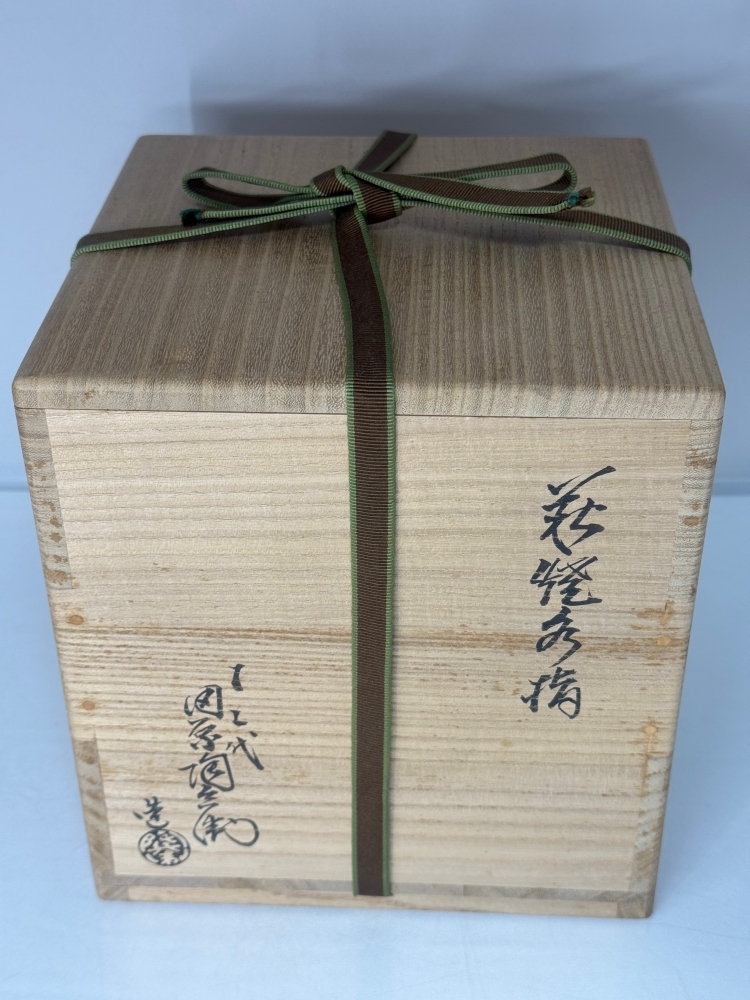 萩燒水指
十二代
田原陶兵衛
造